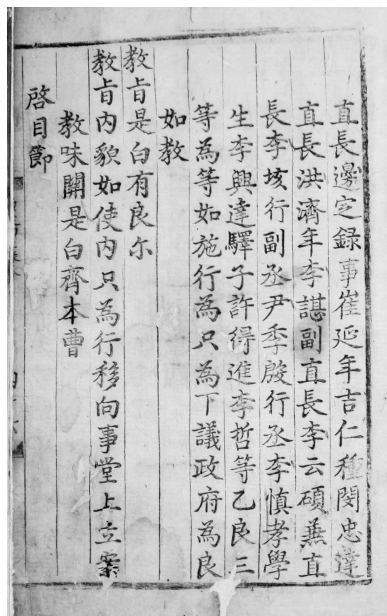 直長邊定録事崔延年吉仁種閔忠達
直長洪濟年李諶副直長李云碩兼直
長李垓行副丞尹季殷行丞李愼孝學
生李興達驛子許得進李哲等乙良三
等為等如施行為只為下議政府為良
如教
教旨是白有良尔
教旨内貌如使内只為行移向事堂上立案
教味關是白齊本曹
啓目節